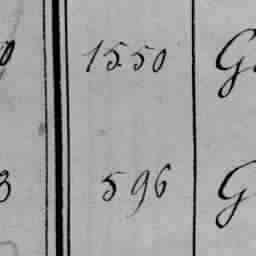 0 1550 G
3 596 G